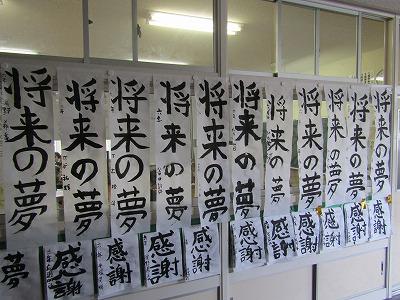 将来の夢
将来の夢
将来の夢
将来の夢
将来の夢
将来の夢
将来の夢
将来の夢
将来の夢
将来の夢
将来の夢
夢
感謝
感謝
感謝
感謝
感謝
感謝
感謝
感謝
感謝
感謝